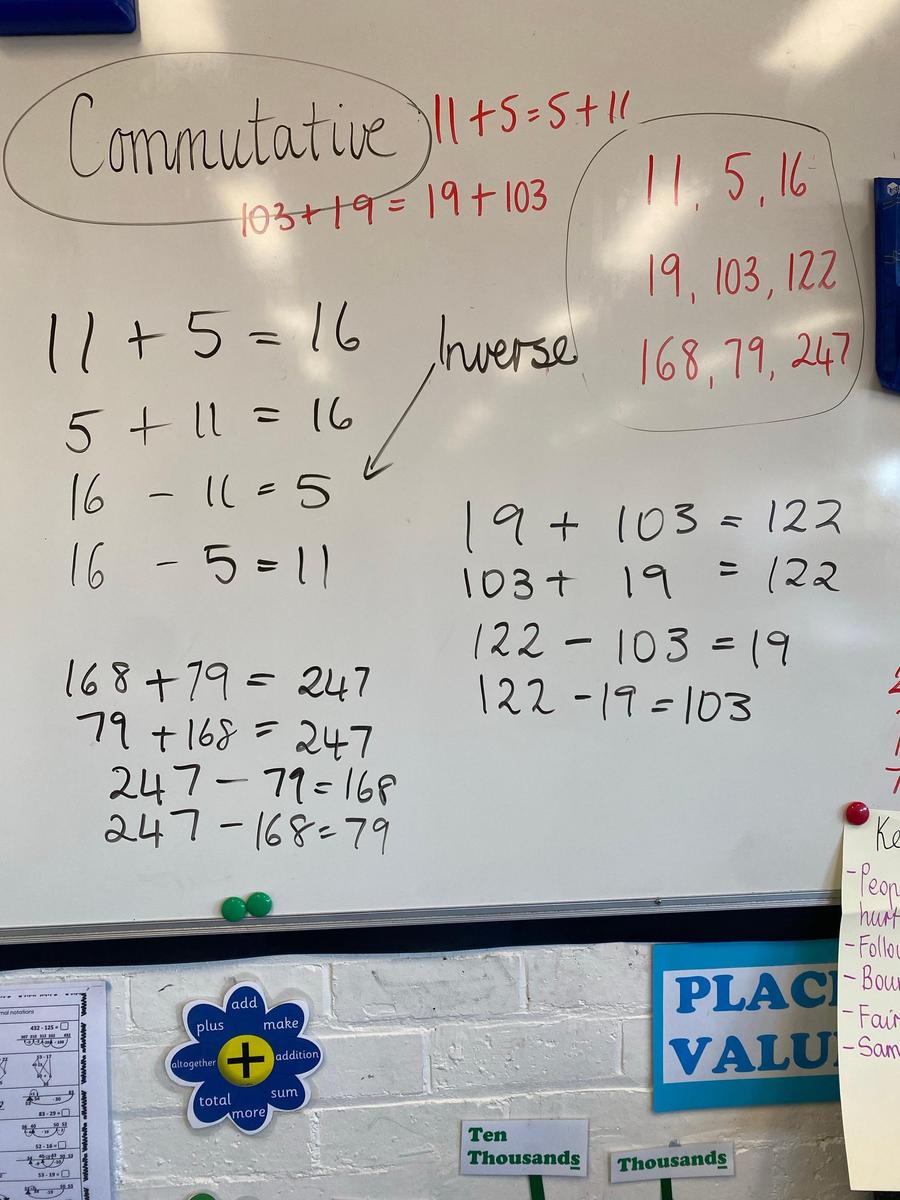 Commutative
11 + 5 = 5 + 11
103 + 19 = 19 + 103
11, 5, 16
19, 103, 122
168, 79, 247
Inverse
11 + 5 = 16
5 + 11 = 16
16 - 11 = 5
16 - 5 = 11
19 + 103 = 122
103 + 19 = 122
122 - 103 = 19
122 - 19 = 103
168 + 79 = 247
79 + 168 = 247
247 - 79 = 168
247 - 168 = 79
Ke
- Peop
hurt
- Follo
- Bou
- Fair
- Sam
add
plus
make
altogether
+
addition
total
sum
more
PLAC
VALU
Ten
Thousands
Thousands
432 - 125 =
83 - 29 =
52 - 16 =
53 - 19 =